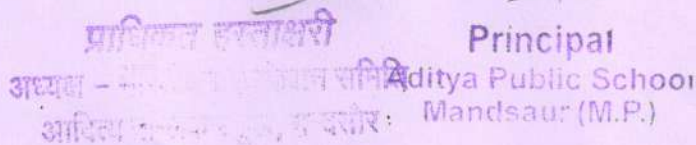 प्राधिकृत हस्ताक्षरी
अध्यक्ष – समिति
आदित्य
मन्दसौर
Principal
Aditya Public School
Mandsaur (M.P.)